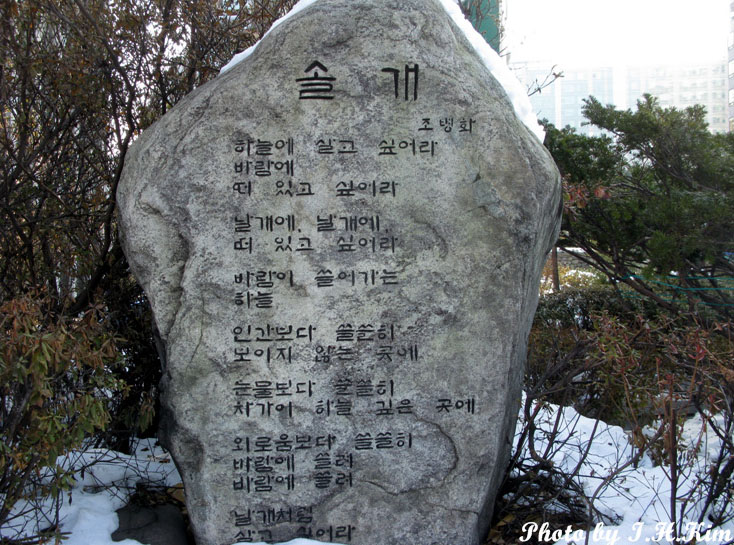 솔개
조병화
하늘에 살고 싶어라
바람에
떠 있고 싶어라
날개에, 날개에,
떠 있고 싶어라
바람이 쓸어가는
하늘
인간보다 쓸쓸히
보이지 않는 곳에
눈물보다 쓸쓸히
차가이 하늘 깊은 곳에
외로움보다 쓸쓸히
바람에 쓸려
바람에 쓸려
날개처럼
살고 싶어라
Photo by I.H.Kim